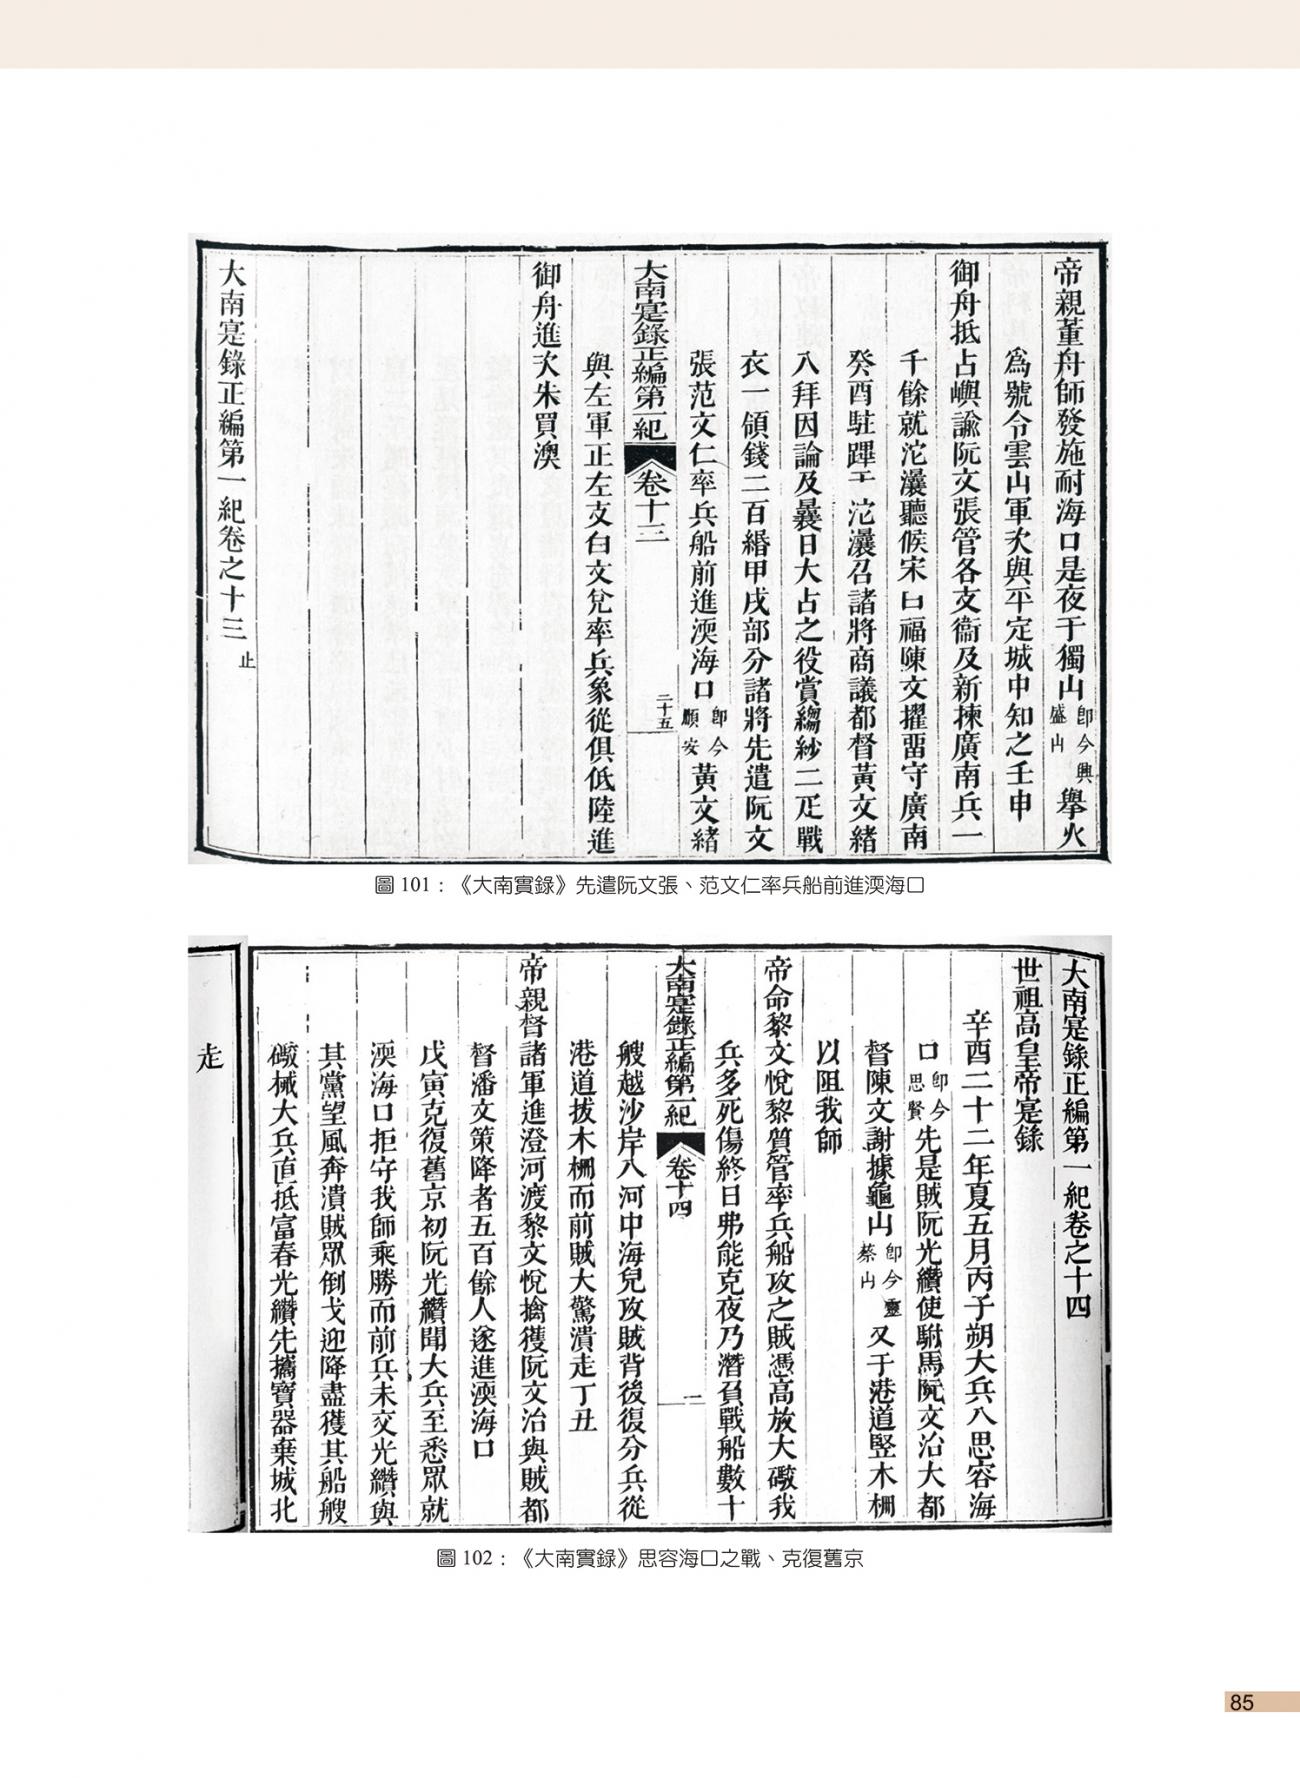 帝親董舟師發施耐海口是夜于獨山即今興盛山舉火
爲號令雲山軍次與平定城中知之壬申
御舟抵占嶼諭阮文張管各支衞及新揀廣南兵一
千餘就沱灢聽候宋曰福陳文擢畱守廣南
癸酉駐蹕于沱灢召諸將商議都督黃文緒
入拜因論及曩日大占之役賞縐紗二疋戰
衣一領錢二百緡甲戌部分諸將先遣阮文
張范文仁率兵船前進渜海口即今順安黃文緒
大南寔錄正編第一紀 卷十三 二十五
與左軍正左支白文兌率兵象從俱低陸進
御舟進次朱買澳
大南寔錄正編第一紀卷之十三 止
圖 101：《大南實錄》先遣阮文張、范文仁率兵船前進渜海口
大南寔錄正編第一紀卷之十四
世祖高皇帝寔錄
辛酉二十二年夏五月丙子朔大兵入思容海
口即今思賢先是賊阮光纘使駙馬阮文治大都
督陳文謝據龜山即今靈蔡山又于港道竪木柵
以阻我師
帝命黎文悅黎質管率兵船攻之賊憑高放大礮我
兵多死傷終日弗能克夜乃潛以戰船數十
大南寔錄正編第一紀 卷十四 一
艘越沙岸入河中海兒攻賊背後復分兵從
港道拔木柵而前賊大驚潰走丁丑
帝親督諸軍進澄河渡黎文悅擒獲阮文治與賊都
督潘文策降者五百餘人遂進渜海口
戊寅克復舊京初阮光纘聞大兵至悉眾就
渜海口拒守我師乘勝而前兵未交光纘與
其黨望風奔潰賊眾倒戈迎降盡獲其船艘
礮械大兵直抵富春光纘先攜寶器棄城北
走
圖 102：《大南實錄》思容海口之戰、克復舊京
85